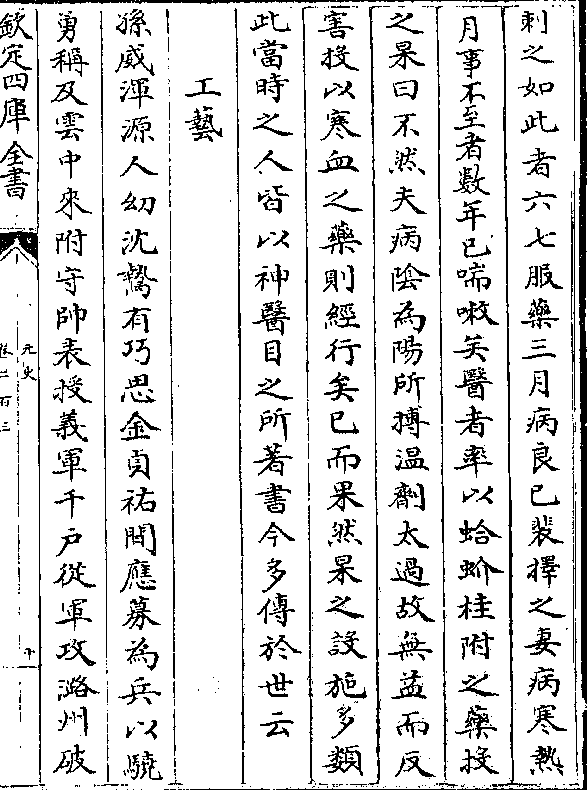 刺之如此者六七服藥三月病良已裴擇之妻病寒熱
月事不至者數年已喘嗽矣醫者率以蛤蚧桂附之藥投
之杲曰不然夫病陰為陽所搏温劑太過故無益而反
害投以寒血之藥則經行矣已而果然杲之設施多類
此當時之人皆以神醫目之所著書今多傳於世云
工藝
孫威渾源人幼沈鷙有巧思金貞祐間應募為兵以驍
勇稱及雲中來附守帥表授義軍千戶從軍攻潞州破
欽定四庫全書
元史
卷二百三
十